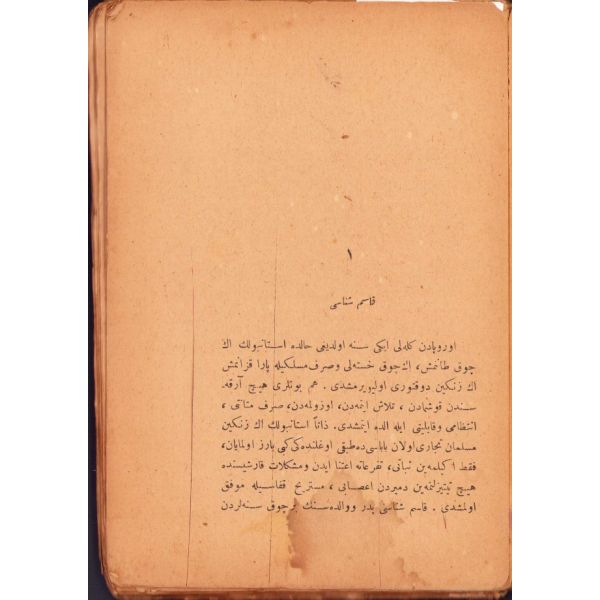 ١
قاسم شناسی
اوروپادن کله‌لی ایکی سنه اولدیغی حالده استانبولك اك
چوق طانمش، اك‌چوق خسته‌لی وصرف مسلكیله پارا قزانمش
اك زنكین دوقتوری اولیویرمشدی. هم بونلری هیچ آرقه‌
سندن قوشمادن، تلاش ایتمه‌دن، اوزولمه‌دن، صرف متانتی،
انتظامی وقابلیتی ایله الده ایتمشدی. ذاتاً استانبولك اك زنكین
مسلمان تجاری اولان باباسی‌ده‌طبقی اوغلنده‌كی كبی بارز اولمایان،
فقط اكیلمه‌ین ثباتی، تفرعاته اعتنا ایدن ومشکلات قارشیسنده
هیچ تیتیزلنمه‌ین دمیردن اعصابی، مستریح قفاسیله موفق
اولمشدی. قاسم شناسی پدر ووالده‌سنك برچوق سنه‌لردن